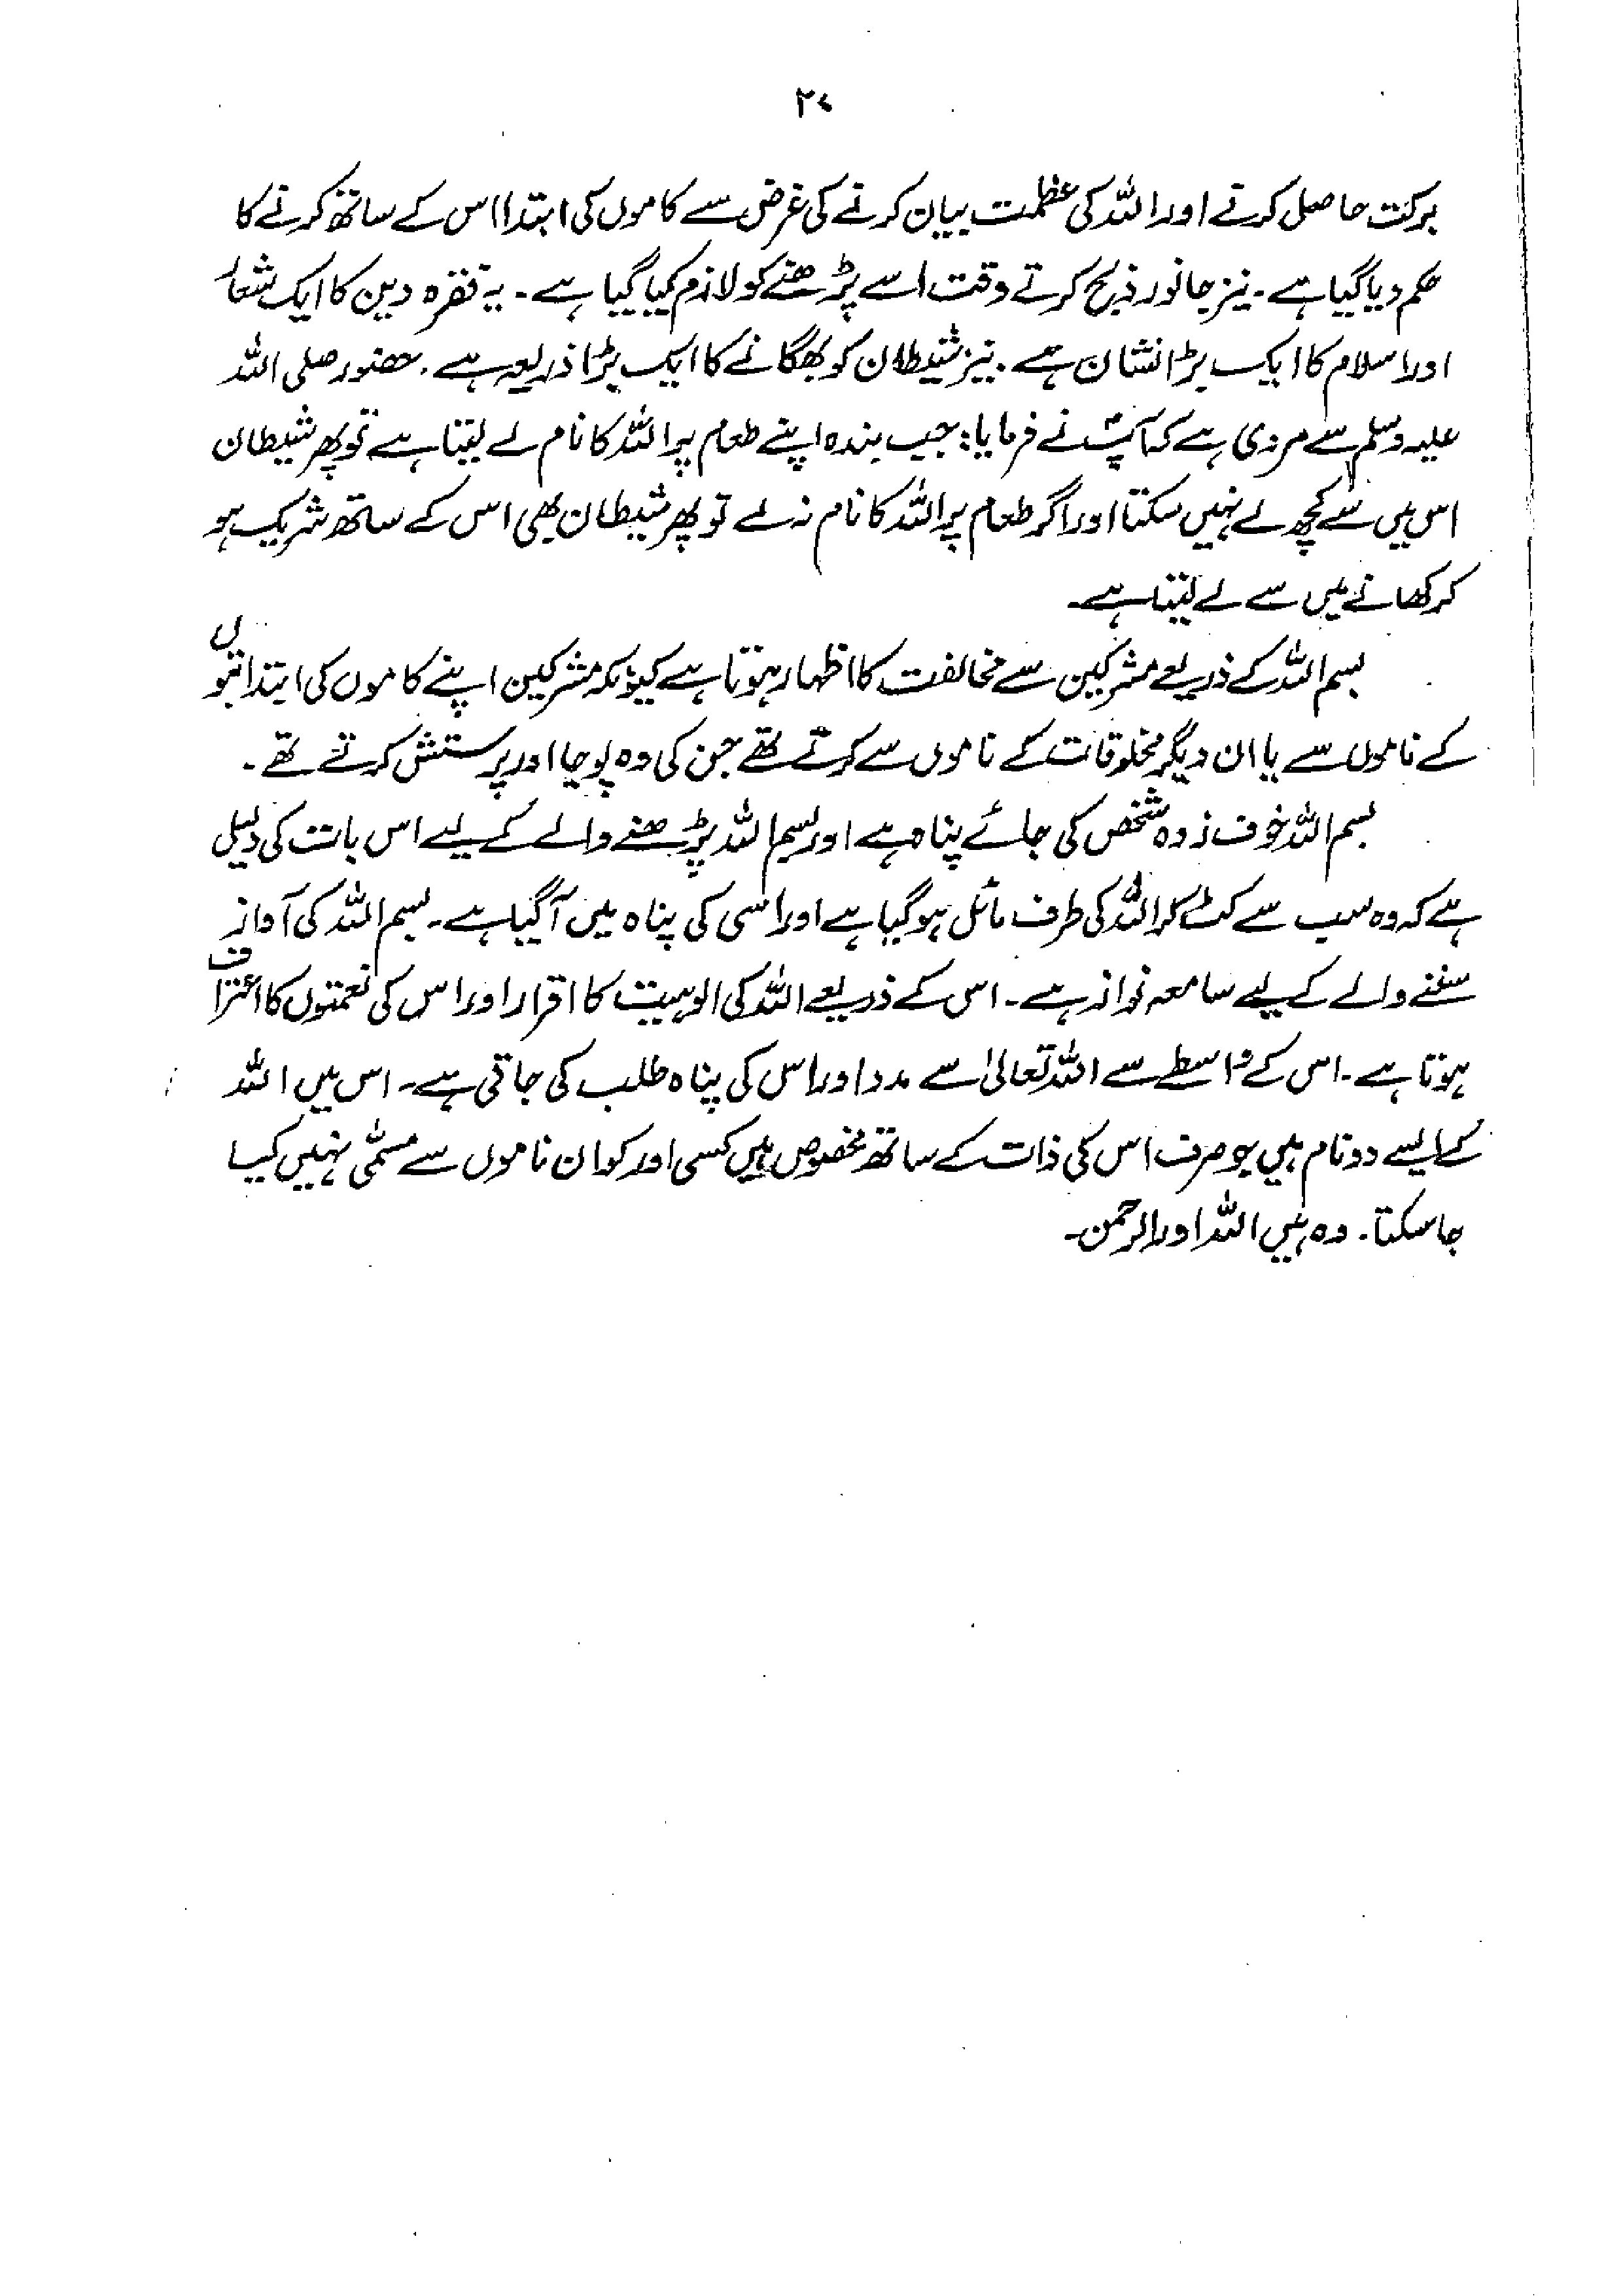 ۲۷
برکت حاصل کرنے اور اللہ کی عظمت بیان کرنے کی غرض سے کاموں کی ابتدا اس کے ساتھ کرنے کا
حکم دیا گیا ہے۔ نیز جانور ذبح کرتے وقت اسے پڑھنے کو لازم کیا گیا ہے۔ یہ فقرہ دین کا ایک شعار
اور اسلام کا ایک بڑا نشان ہے۔ نیز شیطان کو بھگانے کا ایک بڑا ذریعہ ہے۔ حضور صلی اللہ
علیہ وسلم سے مروی ہے کہ آپؐ نے فرمایا: جب بندہ اپنے طعام پر اللہ کا نام لے لیتا ہے تو پھر شیطان
اس میں سے کچھ لے نہیں سکتا اور اگر طعام پر اللہ کا نام نہ لے تو پھر شیطان بھی اس کے ساتھ شریک ہو
کر کھانے میں سے لے لیتا ہے۔
بسم اللہ کے ذریعے مشرکین سے مخالفت کا اظہار ہوتا ہے کیونکہ مشرکین اپنے کاموں کی ابتدا بتوں
کے ناموں سے یا ان دیگر مخلوقات کے ناموں سے کرتے تھے جن کی وہ پوجا اور پرستش کرتے تھے۔
بسم اللہ خوف زدہ شخص کی جائے پناہ ہے اور بسم اللہ پڑھنے والے کے لیے اس بات کی دلیل
ہے کہ وہ سب سے کٹ کر اللہ کی طرف مائل ہوگیا ہے اور اسی کی پناہ میں آگیا ہے۔ بسم اللہ کی آواز
سننے والے کے لیے سامعہ نواز ہے۔ اس کے ذریعے اللہ کی الوہیت کا اقرار اور اس کی نعمتوں کا اعتراف
ہوتا ہے۔ اس کے واسطے سے اللہ تعالیٰ سے مدد اور اس کی پناہ طلب کی جاتی ہے۔ اس میں اللہ
کے ایسے دو نام ہیں جو صرف اس کی ذات کے ساتھ مخصوص ہیں کسی اور کو ان ناموں سے مسمّٰی نہیں کیا
جا سکتا۔ وہ ہیں اللہ اور الرحمن۔